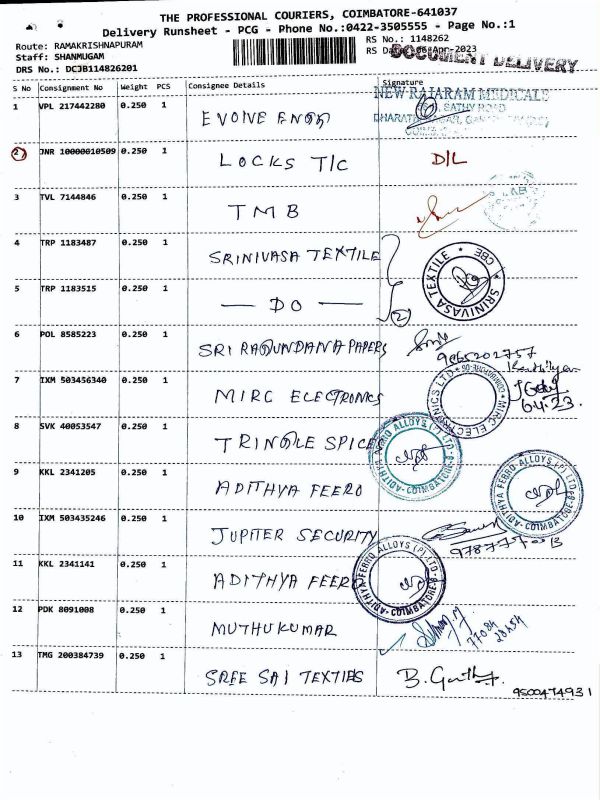 THE PROFESSIONAL COURIERS, COIMBATORE-641037
Delivery Runsheet - PCG - Phone No.:0422-3505555 - Page No.:1
Route: RAMAKRISHNAPURAM
RS No.: 1148262
Staff: SHANMUGAM
RS Apr-2023
DOCUMENT DELIVERY
DRS No.: DCJB114826201
S No Consignment No Weight PCS Consignee Details Signature
NEW RAJARAM MEDICALS
SATHY ROAD
1 VPL 217442280 0.250 1 EVOIVE
2 JNR 10000010509 0.250 1 LOCKS T/C D/L
3 TVL 7144846 0.250 1 TMB
4 TRP 1183487 0.250 1 SRINIVASA TEXTILE
5 TRP 1183515 0.250 1 — DO — 2
SRINIVASA TEXTILE * CBE *
6 POL 8585223 0.250 1 SRI RAGUNDANA PAPERS
9865202757
7 IXM 503456340 0.250 1 MIRC ELECTRONICS
MIRC ELECTRONICS LTD
6.4.23.
8 SVK 40053547 0.250 1 TRINGLE SPICE
ADITHYA FERRO ALLOYS (P) LTD. COIMBATORE-
9 KKL 2341205 0.250 1 ADITHYA FEERO
ADITHYA FERRO ALLOYS (P) LTD. COIMBATORE-
10 IXM 503435246 0.250 1 JUPITER SECURITY
11 KKL 2341141 0.250 1 ADITHYA FEERO
ADITHYA FERRO ALLOYS (P) LTD. COIMBATORE-
12 PDK 8091008 0.250 1 MUTHUKUMAR
77084
28454
13 TMG 200384739 0.250 1 SREE SAI TEXTIES B.
9500474931